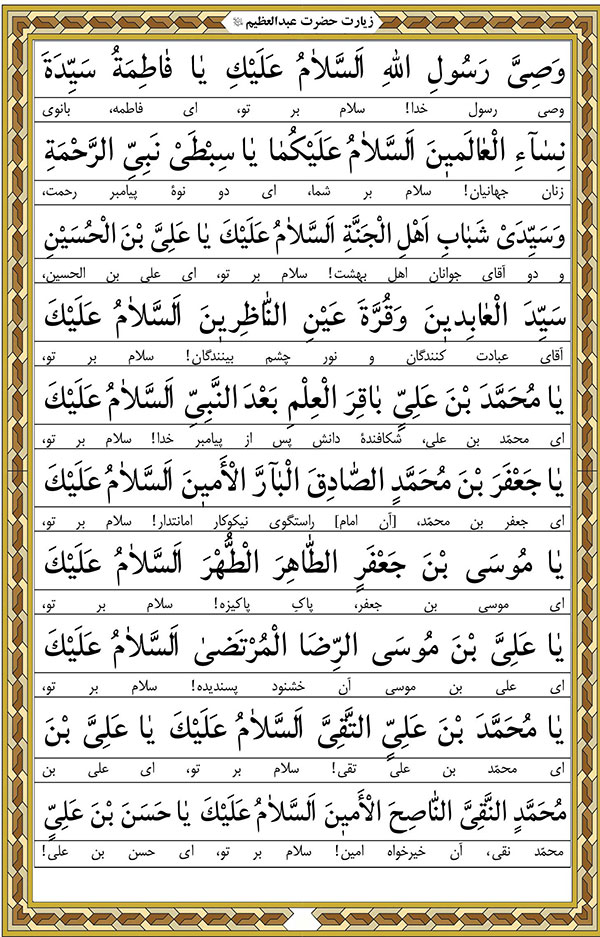 زیارت حضرت عبدالعظیم
وَصِیَّ رَسُولِ اللهِ اَلسَّلاٰمُ عَلَیْكِ یٰا فٰاطِمَةُ سَیِّدَةَ
وصی رسول خدا! سلام بر تو، ای فاطمه، بانوی
نِسٰآءِ الْعٰالَمینَ اَلسَّلاٰمُ عَلَیْكُمٰا یٰا سِبْطَیْ نَبِیِّ الرَّحْمَةِ
زنان جهانیان! سلام بر شما، ای دو نوهٔ پیامبر رحمت،
وَسَیِّدَیْ شَبٰابِ اَهْلِ الْجَنَّةِ اَلسَّلاٰمُ عَلَیْكَ یٰا عَلِیَّ بْنَ الْحُسَیْنِ
و دو آقای جوانان اهل بهشت! سلام بر تو، ای علی بن الحسین،
سَیِّدَ الْعٰابِدینَ وَقُرَّةَ عَیْنِ النّٰاظِرینَ اَلسَّلاٰمُ عَلَیْكَ
آقای عبادت کنندگان و نور چشم بینندگان! سلام بر تو،
یٰا مُحَمَّدَ بْنَ عَلِیٍّ بٰاقِرَ الْعِلْمِ بَعْدَ النَّبِیِّ اَلسَّلاٰمُ عَلَیْكَ
ای محمّد بن علی، شکافندهٔ دانش پس از پیامبر خدا! سلام بر تو،
یٰا جَعْفَرَ بْنَ مُحَمَّدٍ الصّٰادِقَ الْبٰآرَّ الْأَمینَ اَلسَّلاٰمُ عَلَیْكَ
ای جعفر بن محمّد، [آن امام] راستگوی نیکوکار امانتدار! سلام بر تو،
یٰا مُوسَی بْنَ جَعْفَرٍ الطّٰاهِرَ الْطُّهْرَ اَلسَّلاٰمُ عَلَیْكَ
ای موسی بن جعفر، پاکِ پاکیزه! سلام بر تو،
یٰا عَلِیَّ بْنَ مُوسَی الرِّضَا الْمُرْتَضىٰ اَلسَّلاٰمُ عَلَیْكَ
ای علی بن موسی آن خشنود پسندیده! سلام بر تو،
یٰا مُحَمَّدَ بْنَ عَلِیٍّ التَّقِیَّ اَلسَّلاٰمُ عَلَیْكَ یٰا عَلِیَّ بْنَ
ای محمّد بن علی تقی! سلام بر تو، ای علی بن
مُحَمَّدٍ النَّقِیَّ النّٰاصِحَ الْأَمینَ اَلسَّلاٰمُ عَلَیْكَ یٰا حَسَنَ بْنَ عَلِیٍّ
محمّد نقی، آن خیرخواه امین! سلام بر تو، ای حسن بن علی!